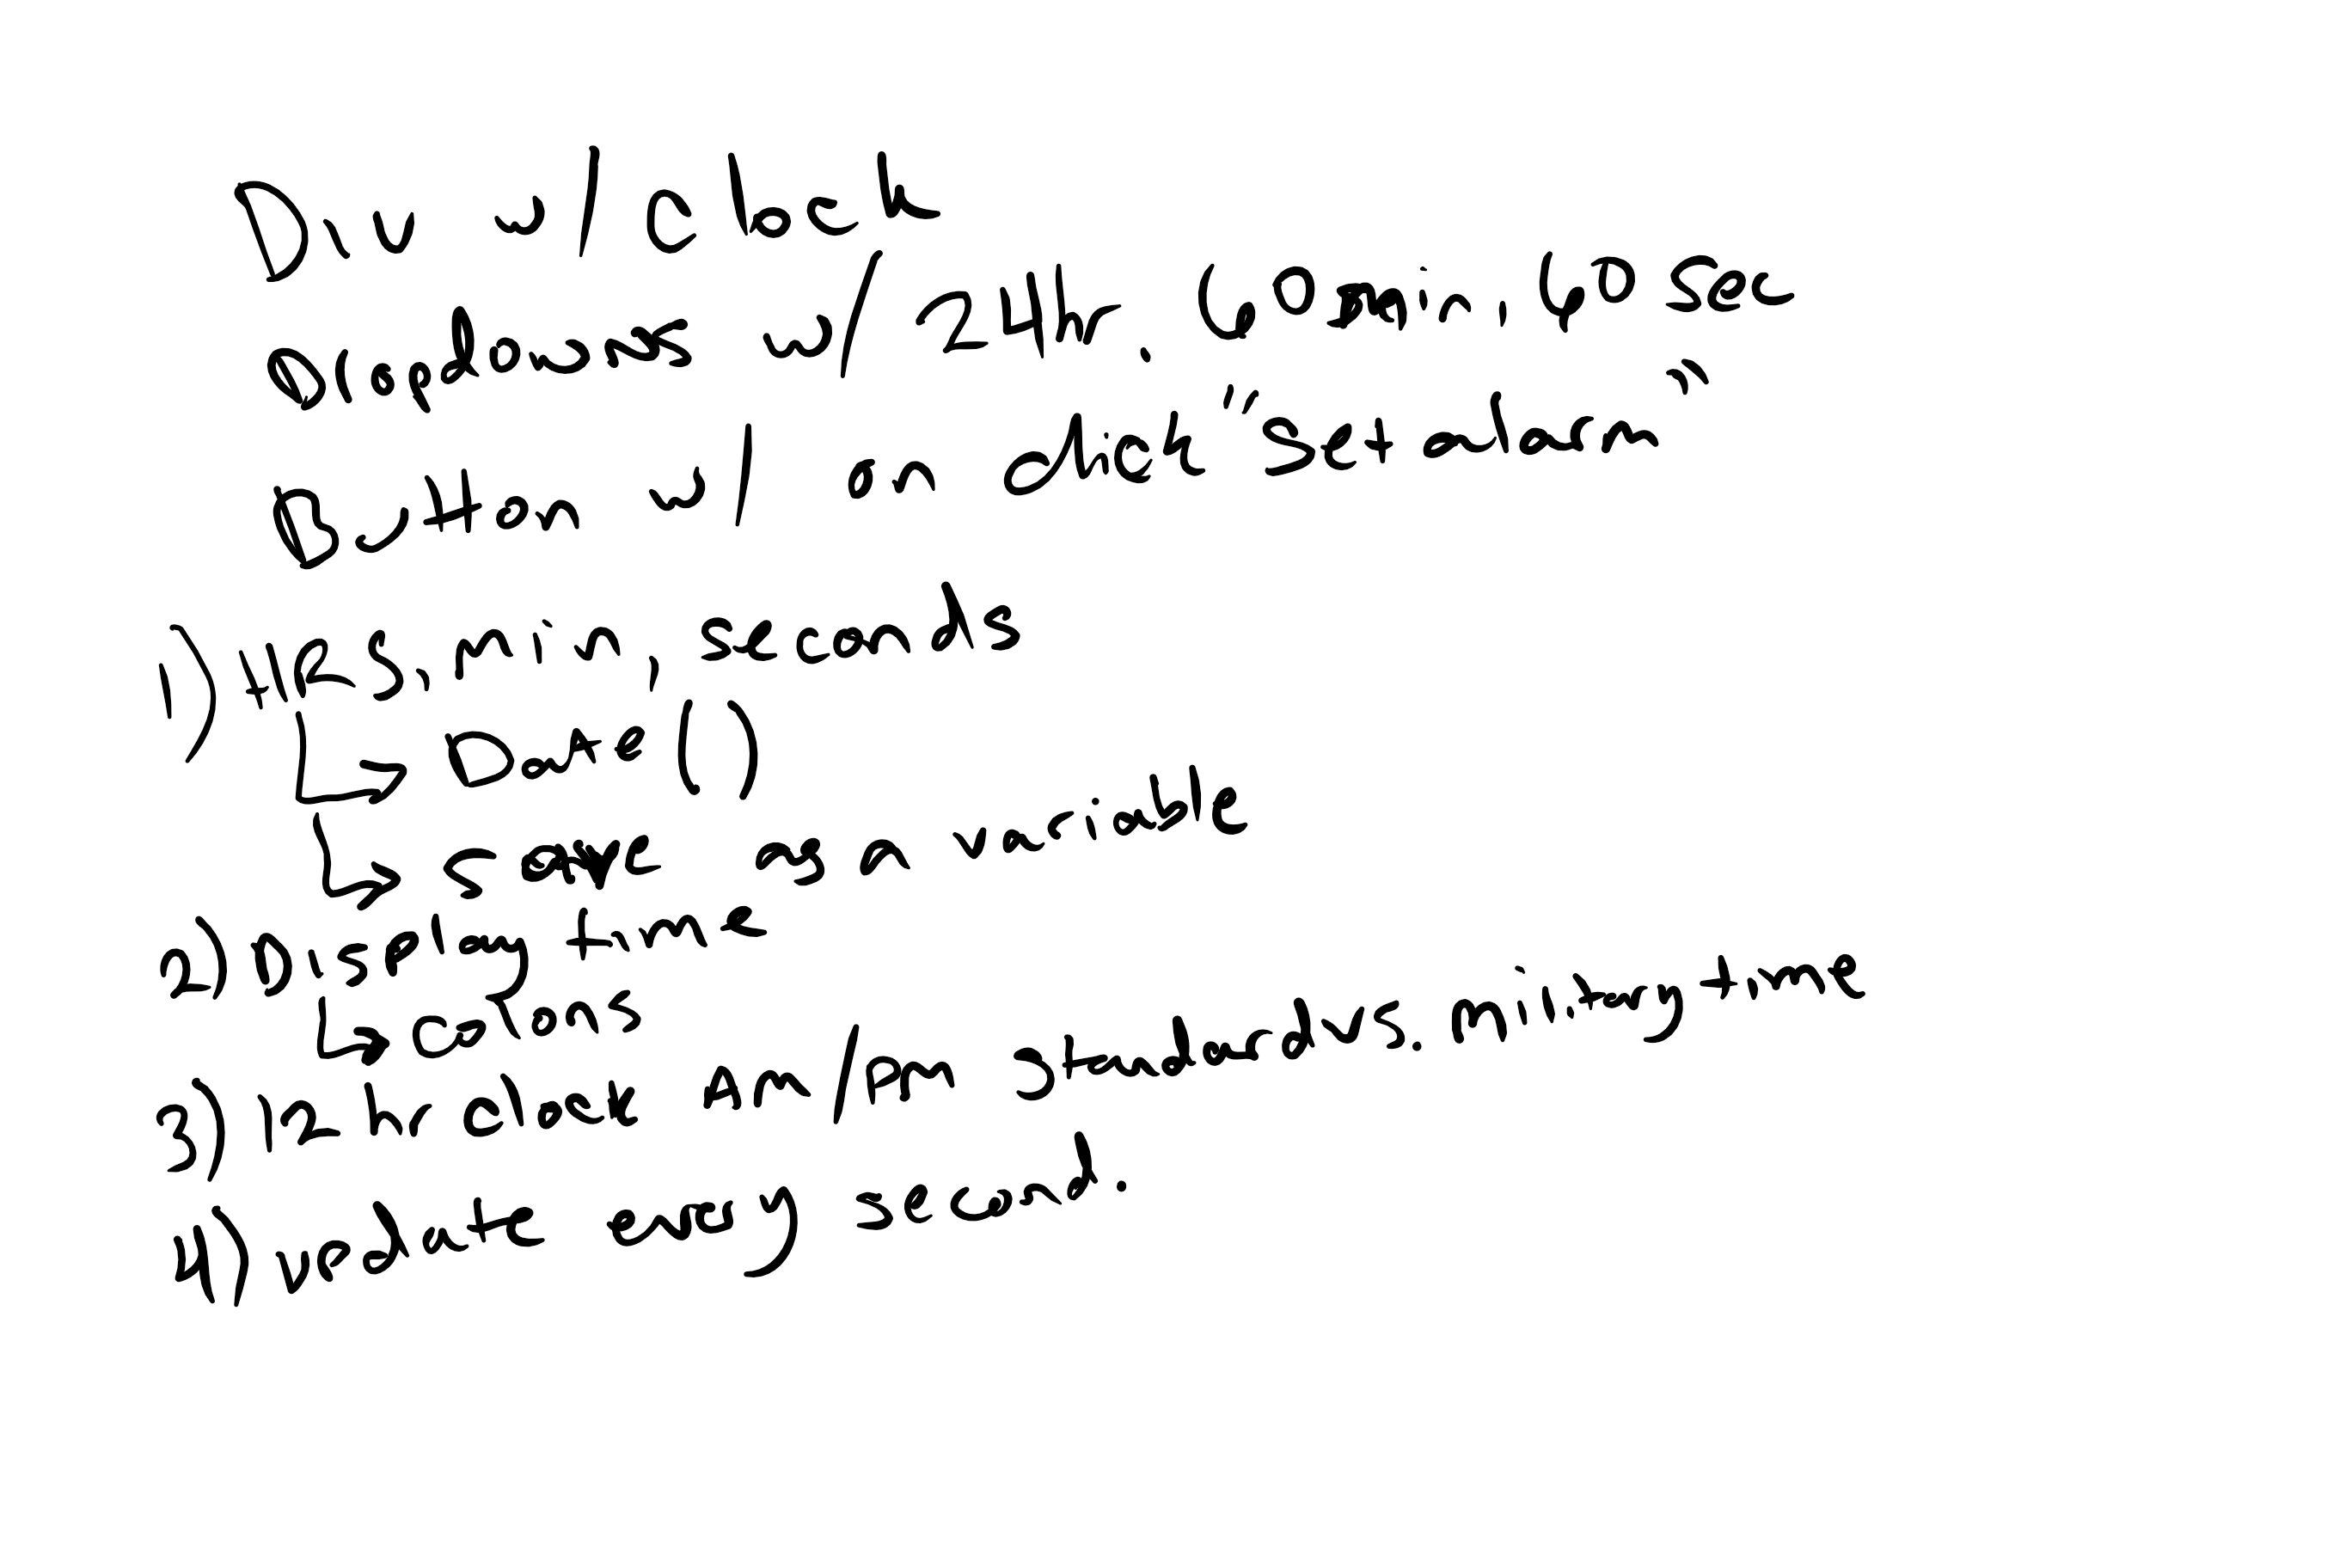 Div w/ clock
Dispdowns w/ 24hr. 60 min, 60 sec
Button w/ an click "Set alarm"
1) HRS, min, seconds
Date()
save as a variable
2) Display time
colons
3) 12 hr clock Am/Pm standard vs. military time
4) update every second.